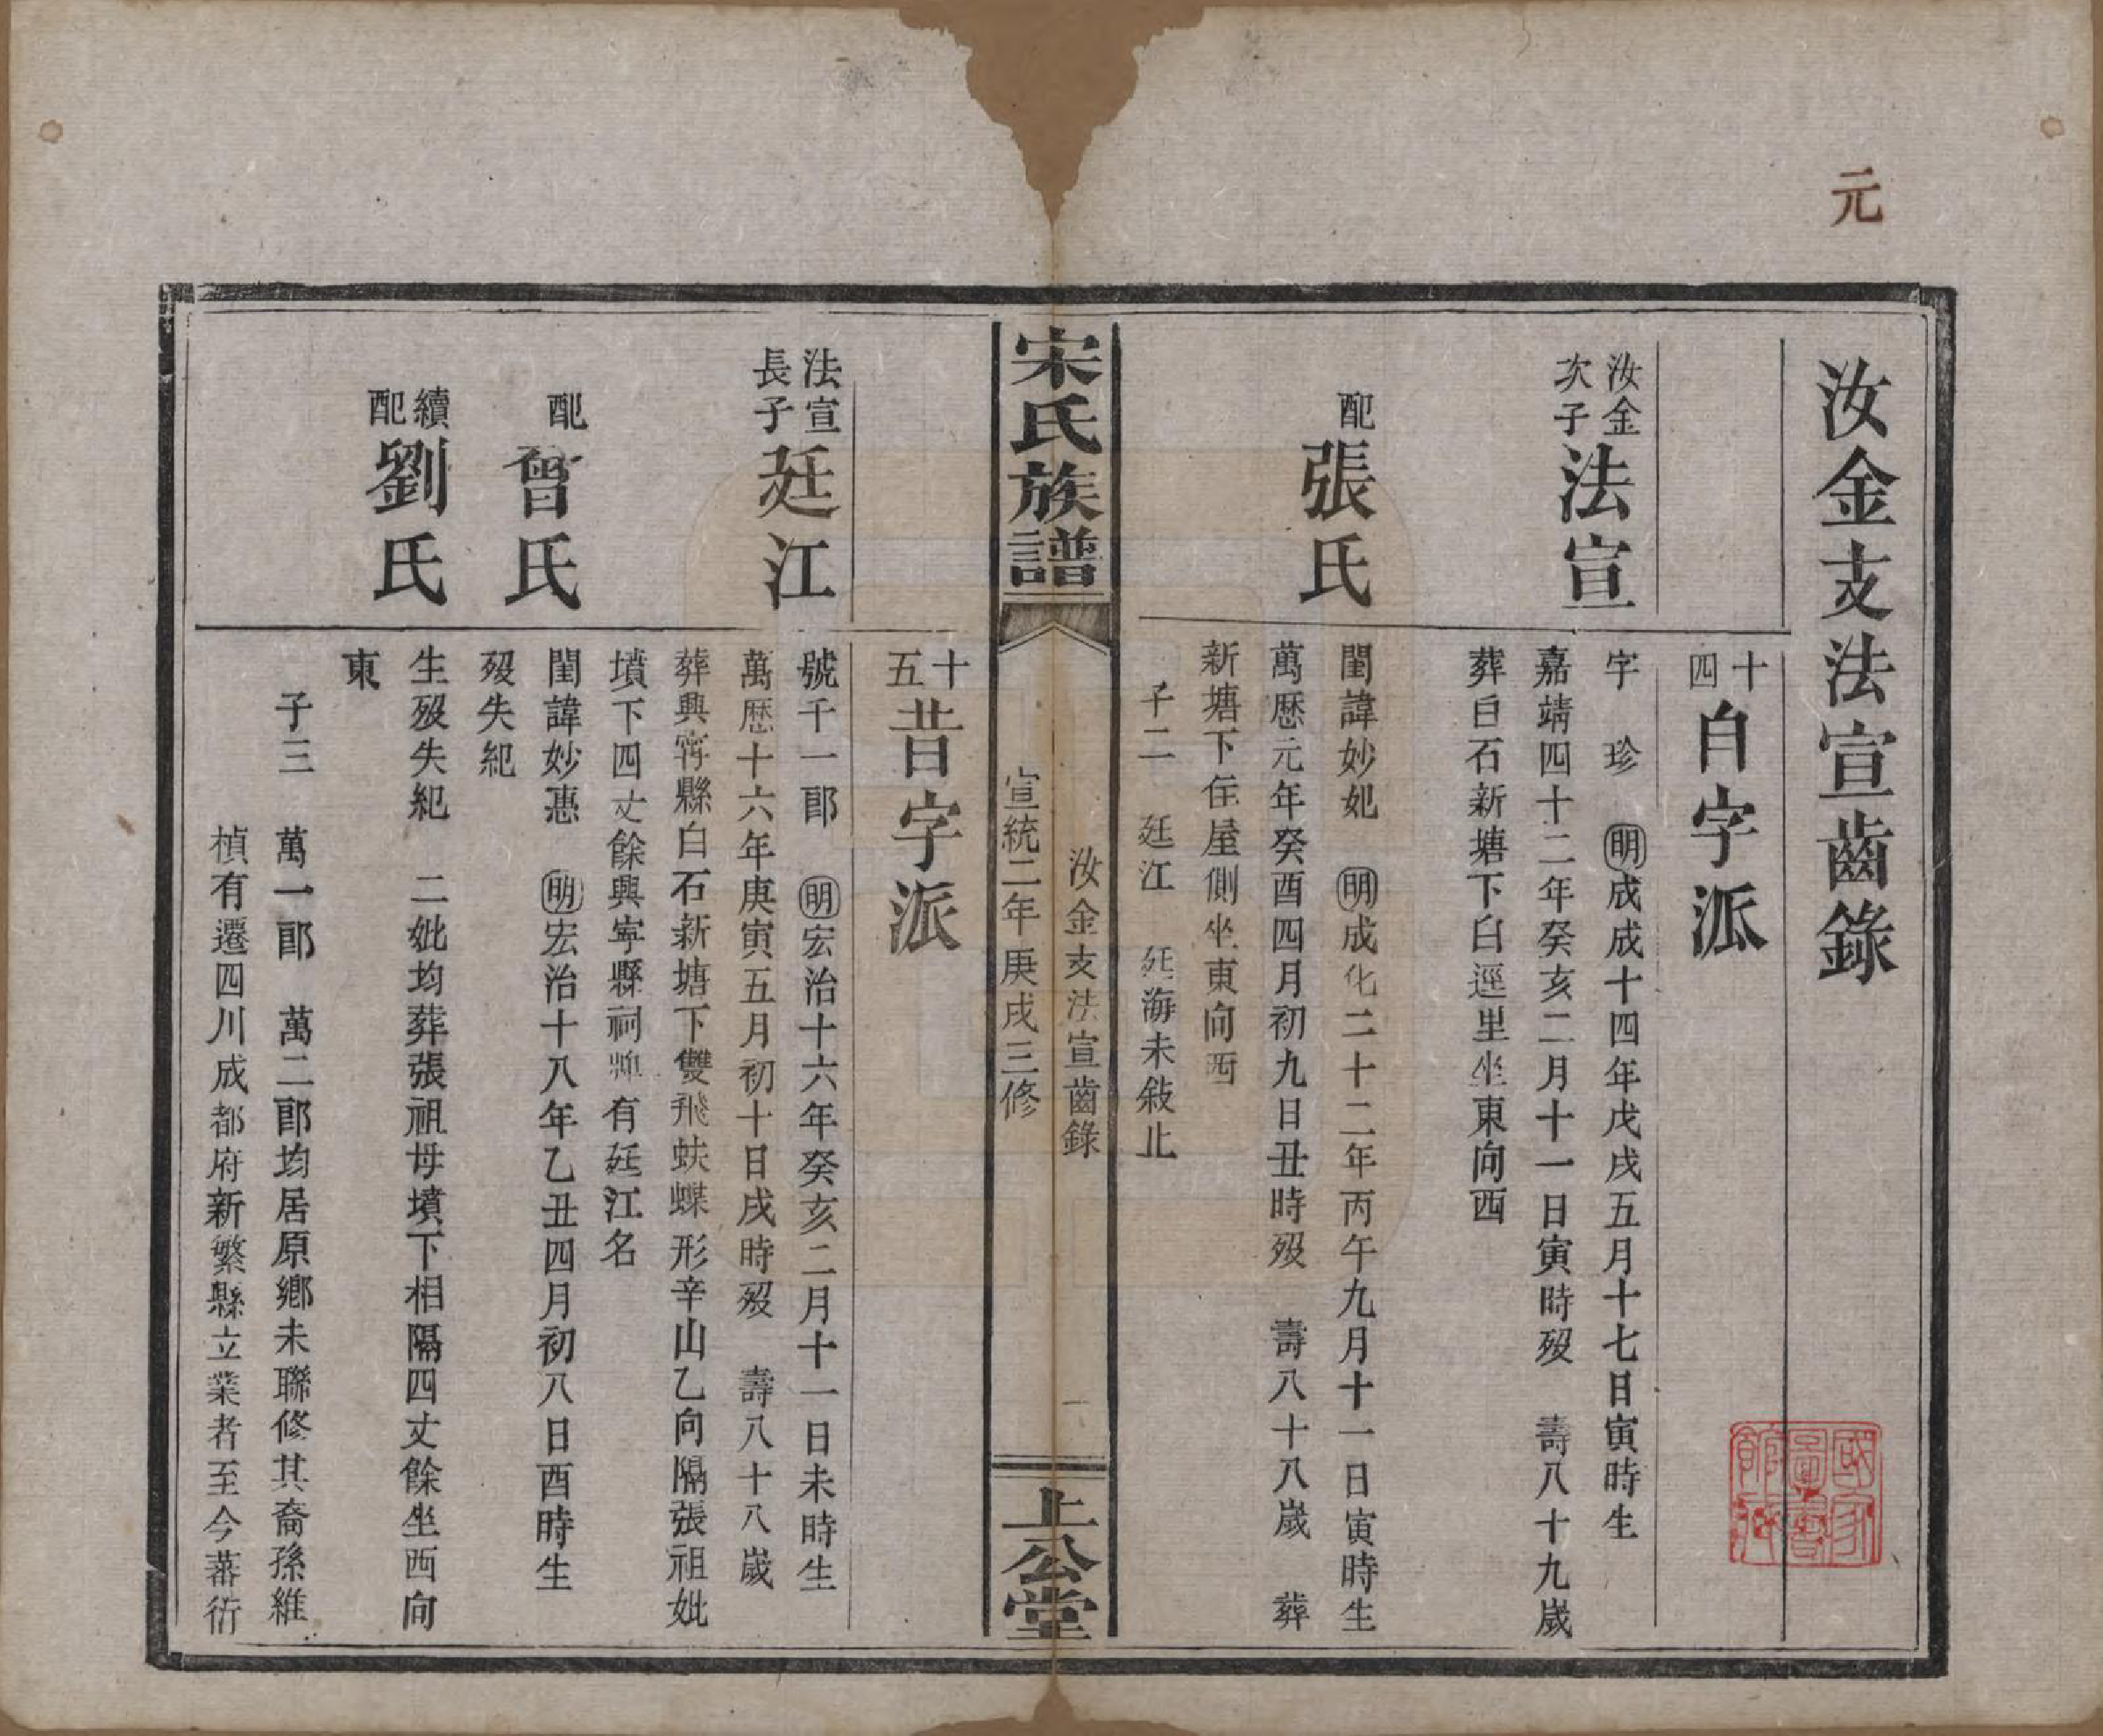 元
汝金支法宣齒錄
十四
自字派
汝金次子
法宣
字 珍 明成成十四年戊戌五月十七日寅時生
嘉靖四十二年癸亥二月十一日寅時歿 壽八十九歲
葬白石新塘下白逕里坐東向西
配
張氏
閨諱妙妃 明成化二十二年丙午九月十一日寅時生
萬歷元年癸酉四月初九日丑時歿 壽八十八歲 葬
新塘下住屋側坐東向西
子二 廷江 廷海未敍止
宋氏族譜
汝金支法宣齒錄
一
宣統二年庚戌三修
上公堂
十五
昔字派
法宣長子
廷江
號千一郎 明宏治十六年癸亥二月十一日未時生
萬歷十六年庚寅五月初十日戌時歿 壽八十八歲
葬興寧縣白石新塘下雙飛蚨蝶形辛山乙向隔張祖妣
墳下四丈餘興寧縣祠 有廷江名
配
曾氏
閨諱妙惠 明宏治十八年乙丑四月初八日酉時生
歿失紀
續配
劉氏
生歿失紀 二妣均葬張祖母墳下相隔四丈餘坐西向
東
子三 萬一郎 萬二郎均居原鄉未聯修其裔孫維
楨有遷四川成都府新繁縣立業者至今蕃衍
國家圖書館藏